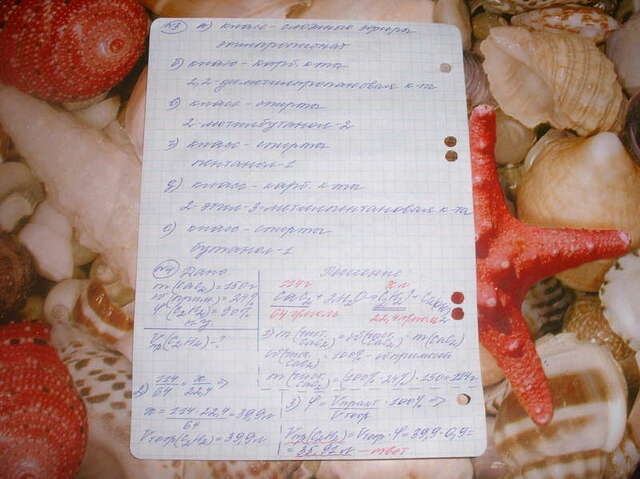 №3 а) класс - сложные эфиры
этилпропионат
б) класс - карб. к-та
2,2-диметилпропановая к-та
в) класс - спирты
2-метилбутанол-2
г) класс - спирты
пентанол-1
д) класс - карб. к-та
2-этил-3-метилпентановая к-та
е) класс - спирты
бутанол-1
№4 Дано
m(CaC₂)=150г
w(прим.)=24%
φ(C₂H₂)=90%
н.у.
Vпр(C₂H₂)-?
Решение
114г x л
CaC₂+2H₂O=C₂H₂+Ca(OH)₂
64г/моль 22,4л/моль
m(чист. CaC₂)=(100%-24%)·150=114г
2) 114/64=x/22,4 ⇒
x=114·22,4/64=39,9л
Vтеор(C₂H₂)=39,9л
3) φ=Vпракт/Vтеор·100% ⇒
Vпр(C₂H₂)=Vтеор·φ=39,9·0,9=
=35,91л - ответ